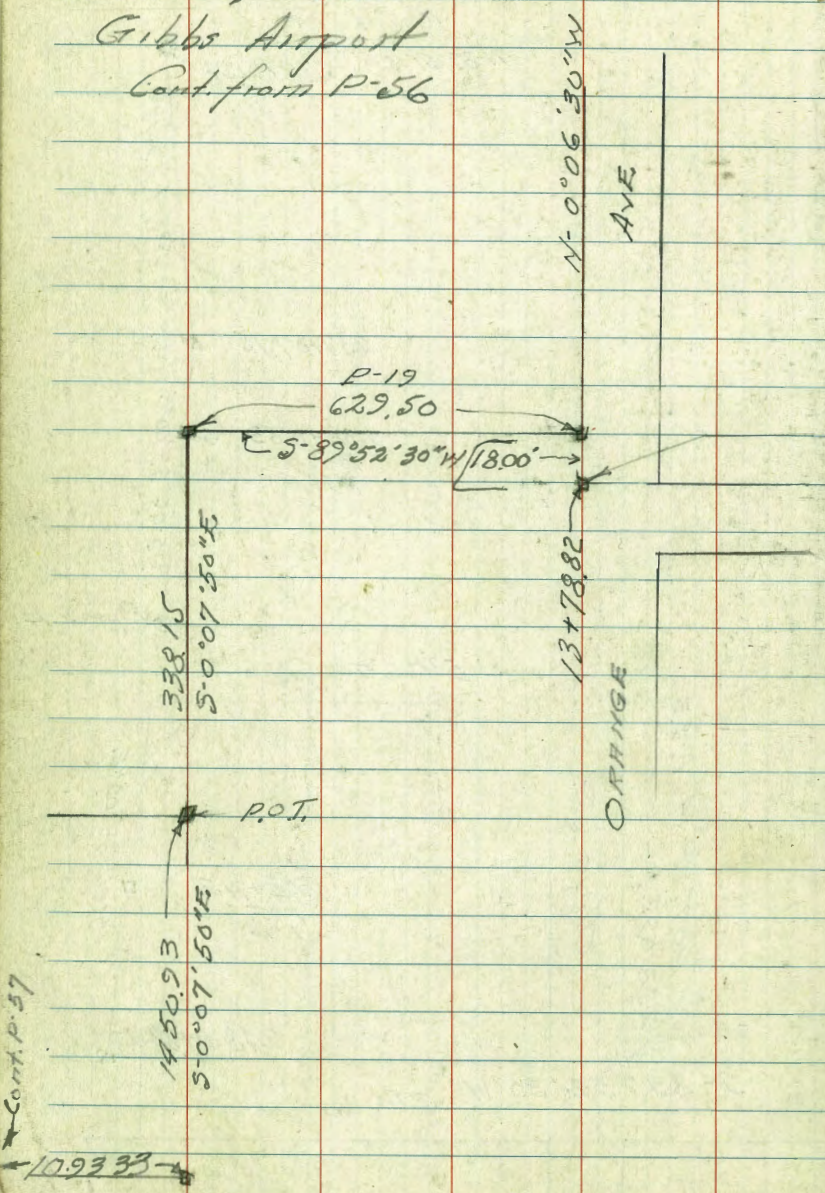 Gibbs Airport
Cont. from P-56
N-0°06'30"W
AVE
P-19
629.50
S-89°52'30"W
18.00'
338.15
S-0°07'50"E
13+78.82
ORANGE
P.O.T.
1450.93
S-0°07'50"E
Cont. P-57
1093.33